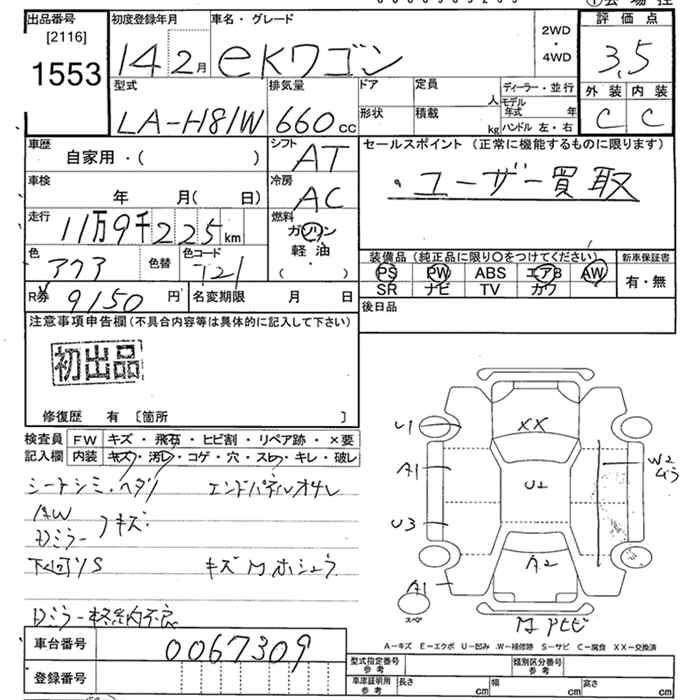 出品番号
[2116]
1553
初度登録年月
14 2月
車名・グレード
eKワゴン
2WD
・
4WD
評価点
3.5
外装 内装
C C
型式
LA-H81W
排気量
660cc
ドア
形状
定員
人
積載
kg
ディーラー・並行
モデル年式 年
ハンドル 左・右
車歴
自家用・( )
シフト
AT
車検
年 月( 日)
冷房
AC
セールスポイント (正常に機能するものに限ります)
ユーザー買取
走行
11万9千225km
燃料
ガソリン
軽油
( ・ )
色
アクア
色替
色コード
T21
R券
9150円
名変期限 月 日
装備品 (純正品に限り○をつけてください)
PS PW ABS エアB AW
SR ナビ TV カワ
新車保証書
有・無
後日品
注意事項申告欄(不具合内容等は具体的に記入して下さい)
初出品
修復歴 有 〔箇所 〕
検査員 FW キズ・飛石・ヒビ割・リペア跡・×要
記入欄 内装 キズ・汚レ・コゲ・穴・スレ・キレ・破レ
シートシミ.ヘタリ エンドパネルオサレ
AW
Dミラー キズ
下回リS キズMホシュウ
Dミラー格納不良
XX
U1
A1
W2
U2
U3
A2
A1
スペア
Mアヒビ
A-キズ E-エクボ U-凹み W-補修跡 S-サビ C-腐食 XX-交換済
車台番号
0067309
登録番号
型式指定番号
参考
類別区分番号
参考
車庫証明用
参考
長さ cm 幅 cm 高さ cm